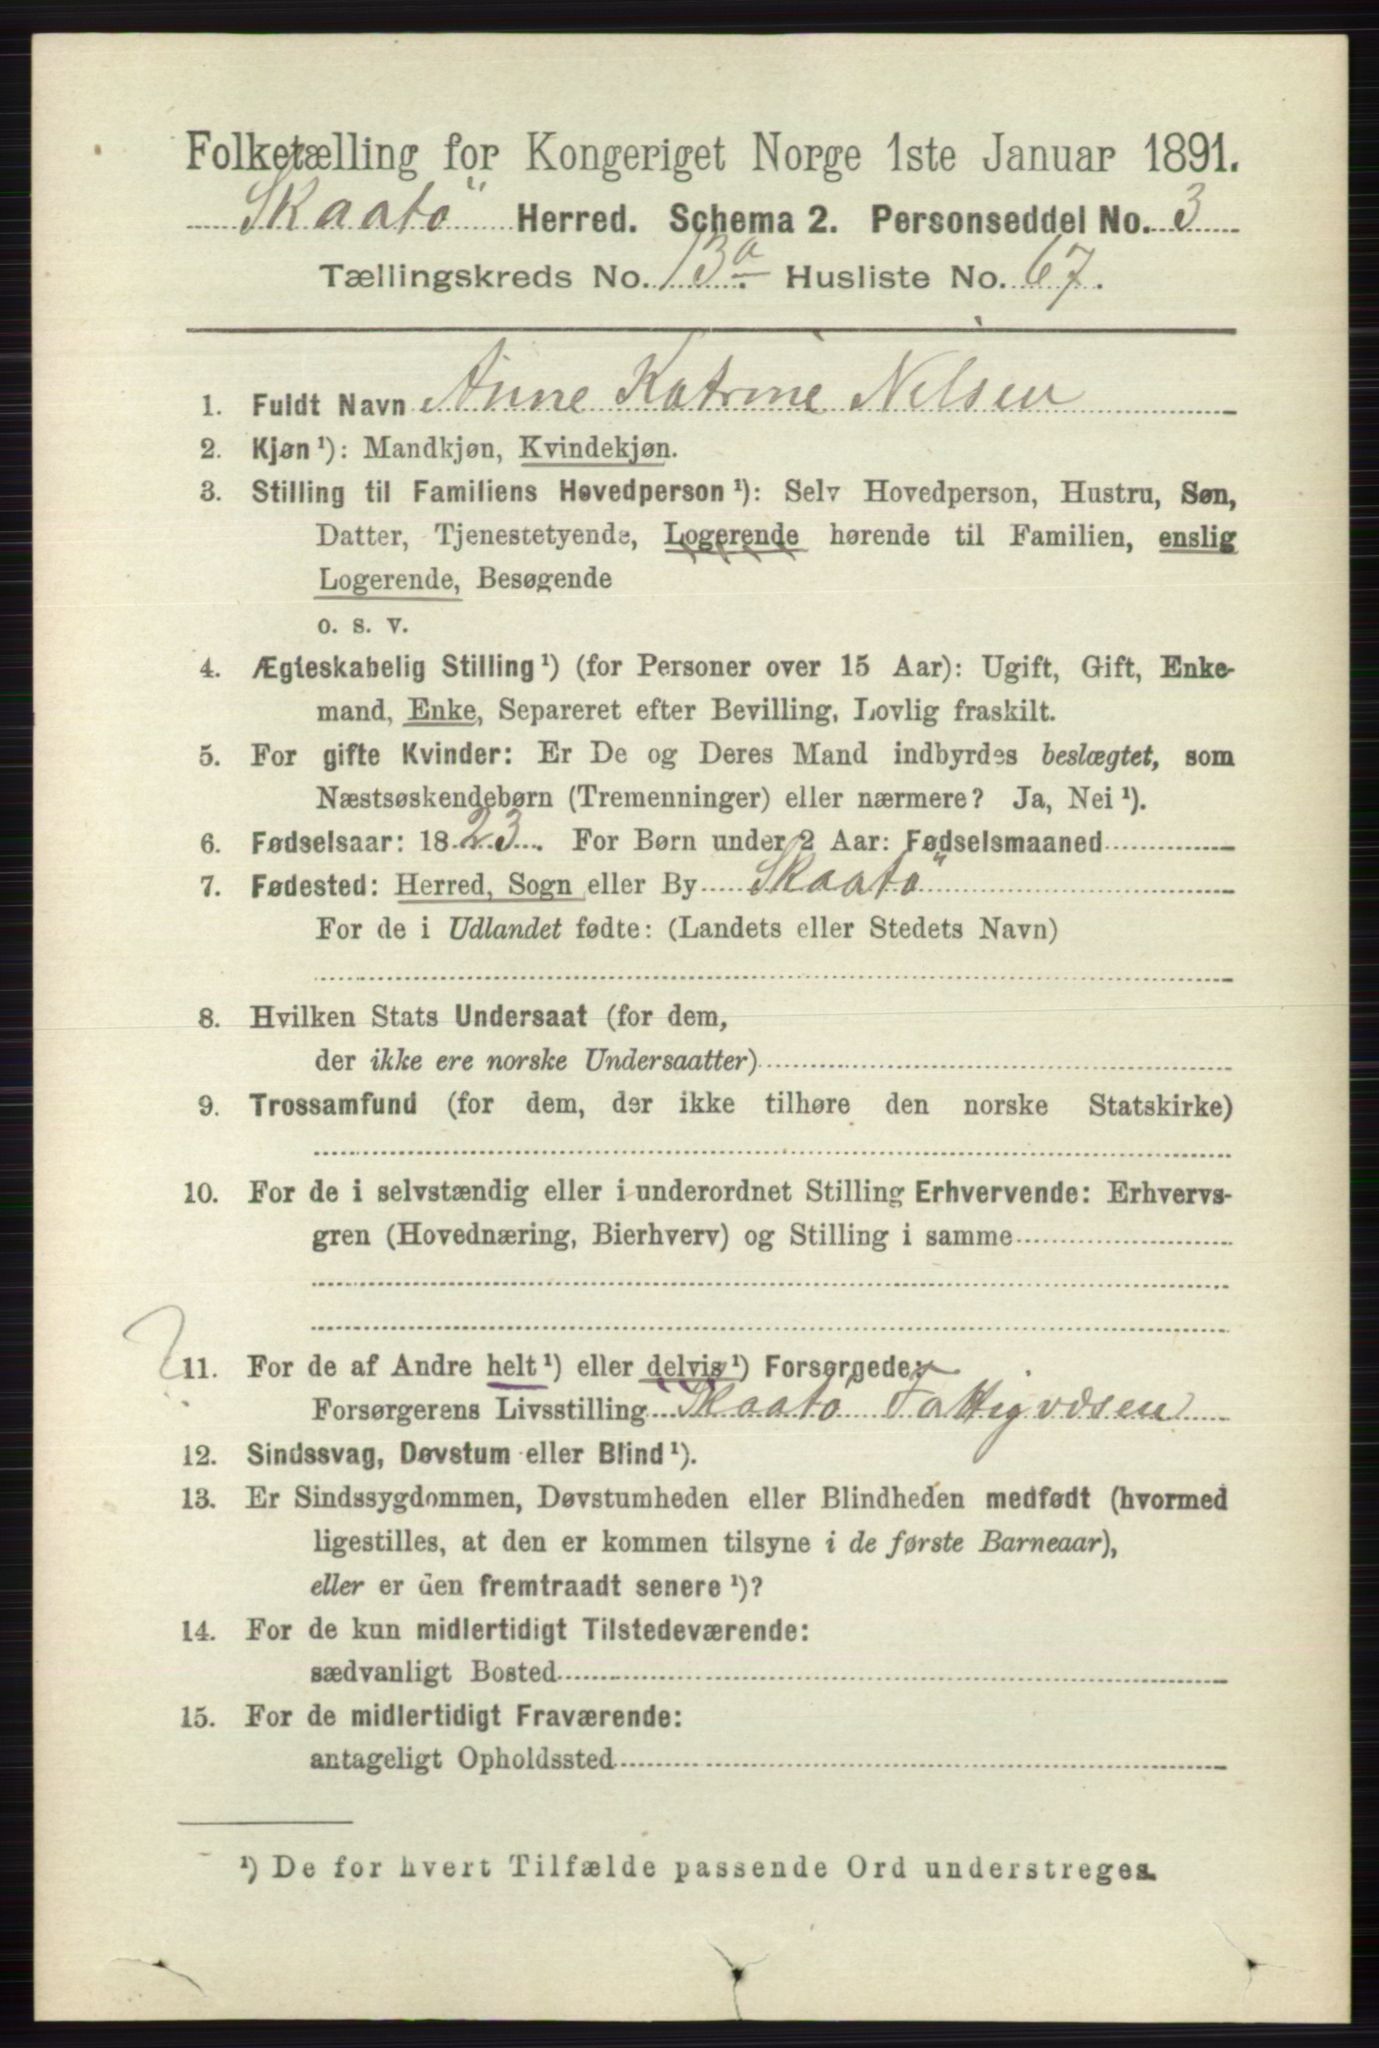 Folketælling for Kongeriget Norge 1ste Januar 1891.
Skaatö Herred. Schema 2. Personseddel No. 3
Tællingskreds No. 13a. Husliste No. 67.
1. Fuldt Navn Anne Katrine Nelsen
2. Kjøn ¹): Mandkjøn, Kvindekjøn.
3. Stilling til Familiens Hovedperson ¹): Selv Hovedperson, Hustru, Søn,
Datter, Tjenestetyende, Logerende hørende til Familien, enslig
Logerende, Besøgende
o. s. v.
4. Ægteskabelig Stilling ¹) (for Personer over 15 Aar): Ugift, Gift, Enke-
mand, Enke, Separeret efter Bevilling, Lovlig fraskilt.
5. For gifte Kvinder: Er De og Deres Mand indbyrdes beslægtet, som
Næstsøskendebørn (Tremenninger) eller nærmere? Ja, Nei ¹).
6. Fødselsaar: 1823. For Børn under 2 Aar: Fødselsmaaned
7. Fødested: Herred, Sogn eller By Skaatö
For de i Udlandet fødte: (Landets eller Stedets Navn)
8. Hvilken Stats Undersaat (for dem,
der ikke ere norske Undersaatter)
9. Trossamfund (for dem, der ikke tilhøre den norske Statskirke)
10. For de i selvstændig eller i underordnet Stilling Erhvervende: Erhvervs-
gren (Hovednæring, Bierhverv) og Stilling i samme
11. For de af Andre helt ¹) eller delvis ¹) Forsørgede:
Forsørgerens Livsstilling Skaatö Fattigvæsen
12. Sindssvag, Døvstum eller Blind ¹).
13. Er Sindssygdommen, Døvstumheden eller Blindheden medfødt (hvormed
ligestilles, at den er kommen tilsyne i de første Barneaar),
eller er den fremtraadt senere ¹)?
14. For de kun midlertidigt Tilstedeværende:
sædvanligt Bosted
15. For de midlertidigt Fraværende:
antageligt Opholdssted
¹) De for hvert Tilfælde passende Ord understreges.